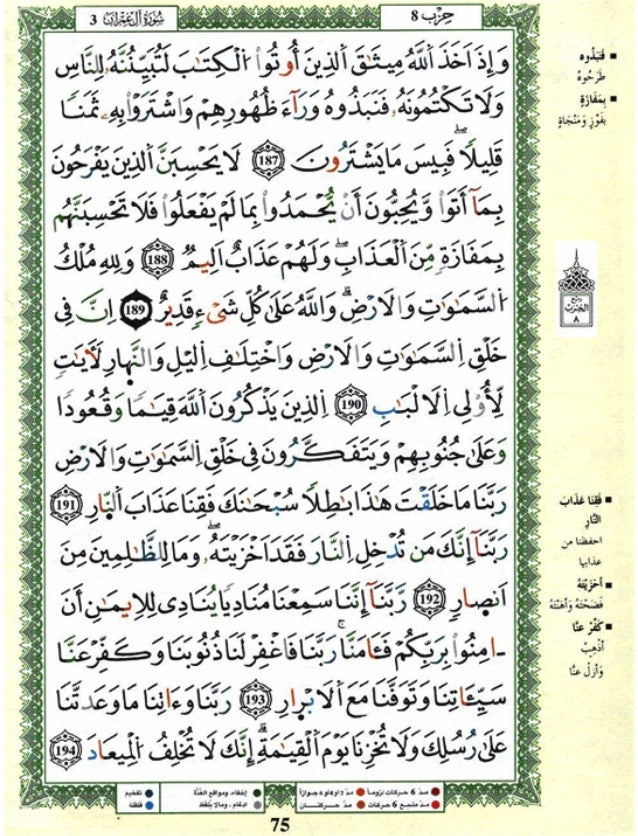 حِزْب 8
سُورَةُ آلِ عِمْرَانَ 3
وَإِذَ اَخَذَ اَللَّهُ مِيثَٰقَ اَلذِينَ أُوتُوا۟ اُلْكِتَٰبَ لَتُبَيِّنُنَّهُۥ لِلنَّاسِ
وَلَا تَكْتُمُونَهُۥ فَنَبَذُوهُ وَرَآءَ ظُهُورِهِمْ وَاشْتَرَوْا۟ بِهِۦ ثَمَنًا
قَلِيلًاۖ فَبِيسَ مَا يَشْتَرُونَ 187 لَا يَحْسِبَنَّ اَلذِينَ يَفْرَحُونَ
بِمَآ أَتَوا۟ وَّيُحِبُّونَ أَنْ يُّحْمَدُوا۟ بِمَا لَمْ يَفْعَلُوا۟ فَلَا تَحْسِبَنَّهُم
بِمَفَازَةٍ مِّنَ اَلْعَذَابِۖ وَلَهُمْ عَذَابٌ اَلِيمٌ 188 وَلِلهِ مُلْكُ
اُلسَّمَٰوَٰتِ وَالَارْضِۖ وَاللَّهُ عَلَىٰ كُلِّ شَےْءٍ قَدِيرٌ 189 اِنَّ فِے
خَلْقِ اِلسَّمَٰوَٰتِ وَالَارْضِ وَاخْتِلَٰفِ اِليْلِ وَالنَّهارِ لَأٓيَٰتٍ
لِّأُوْلِے اِلَالْبَٰبِ 190 اِلذِينَ يَذْكُرُونَ اَللَّهَ قِيَٰمًا وَقُعُودًا
وَعَلَىٰ جُنُوبِهِمْ وَيَتَفَكَّرُونَ فِے خَلْقِ اِلسَّمَٰوَٰتِ وَالَارْضِ
رَبَّنَا مَا خَلَقْتَ هَٰذَا بَٰطِلًا سُبْحَٰنَكَ فَقِنَا عَذَابَ اَلنَّارِ 191
رَبَّنَآ إِنَّكَ مَن تُدْخِلِ اِلنَّارَ فَقَدَ اَخْزَيْتَهُۥۖ وَمَا لِلظَّٰلِمِينَ مِنَ
اَنصارٍ 192 رَّبَّنَآ إِنَّنَا سَمِعْنَا مُنَادِيًا يُنَادِے لِلِايمَٰنِ أَنَ
اٰمِنُوا۟ بِرَبِّكُمْ فَـَٔامَنَّاۚ رَبَّنَا فَاغْفِرْ لَنَا ذُنُوبَنَا وَكَفِّرْ عَنَّا
سَيِّـَٔاتِنَا وَتَوَفَّنَا مَعَ اَلَابْرارِ 193 رَبَّنَا وَءَاتِنَا مَا وَعَدتَّنَا
عَلَىٰ رُسُلِكَ وَلَا تُخْزِنَا يَوْمَ اَلْقِيَٰمَةِۖ إِنَّكَ لَا تُخْلِفُ اُلْمِيعَادَ 194
فَنَبَذُوه
طَرَحُوهُ
بِمَفَازَةٍ
بِفَوْزٍ وَمَنْجَاةٍ
ربع
الحزب
٨
فَقِنَا عَذَابَ
النَّارِ
احفظنا من
عذابها
أَخْزَيْتَهُ
فَضَحْتَهُ وَأَهَنْتَهُ
كَفِّرْ عَنَّا
أَذْهِبْ
وَأَزِلْ عنَّا
مدّ 6 حركات لزوماً
مدّ مشبع 6 حركات
مدّ حركتان
إخفاء، ومواقع الغُنَّة
إدغام، وما لا يُلفظ
تفخيم
قلقلة
75